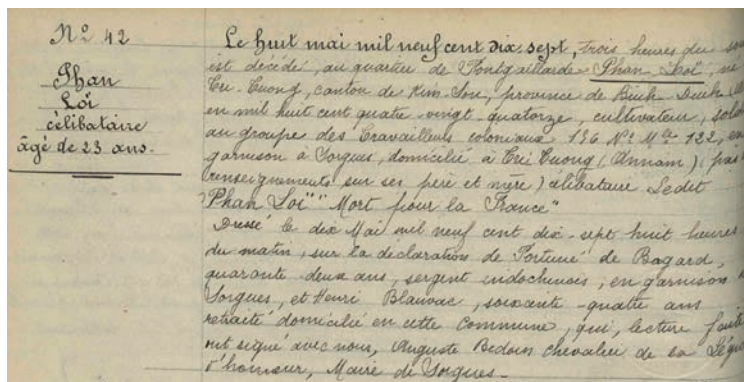 Nº 42
Phan
Loï
célibataire
âgé de 23 ans.
Le huit mai mil neuf cent dix-sept, trois heures du
est décédé, au quartier de Pontgaillarde Phan Loï, né
Cuong, canton de Kim-Son, province de Binh Dinh
en mil huit cent quatre-vingt quatorze, cultivateur,
au groupe des Travailleurs coloniaux 136 Nº Mle 122, en
garnison à Sorgues, domicilié à Tri Cuong (Annam) pas
renseignements sur ses père et mère) célibataire Ledit
"Phan Loï" "Mort pour la France"
Dressé le dix Mai mil neuf cent dix-sept huit heures
du matin, sur la déclaration de Fortuné de Bagard,
quarante deux ans, sergent indochinois, en garnison
Sorgues, et Henri Blauvac, soixante-quatre ans
retraité domicilié en cette commune, qui, lecture faite
ont signé avec nous, Auguste Bedoin chevalier de la
d'honneur, Maire de Sorgues.